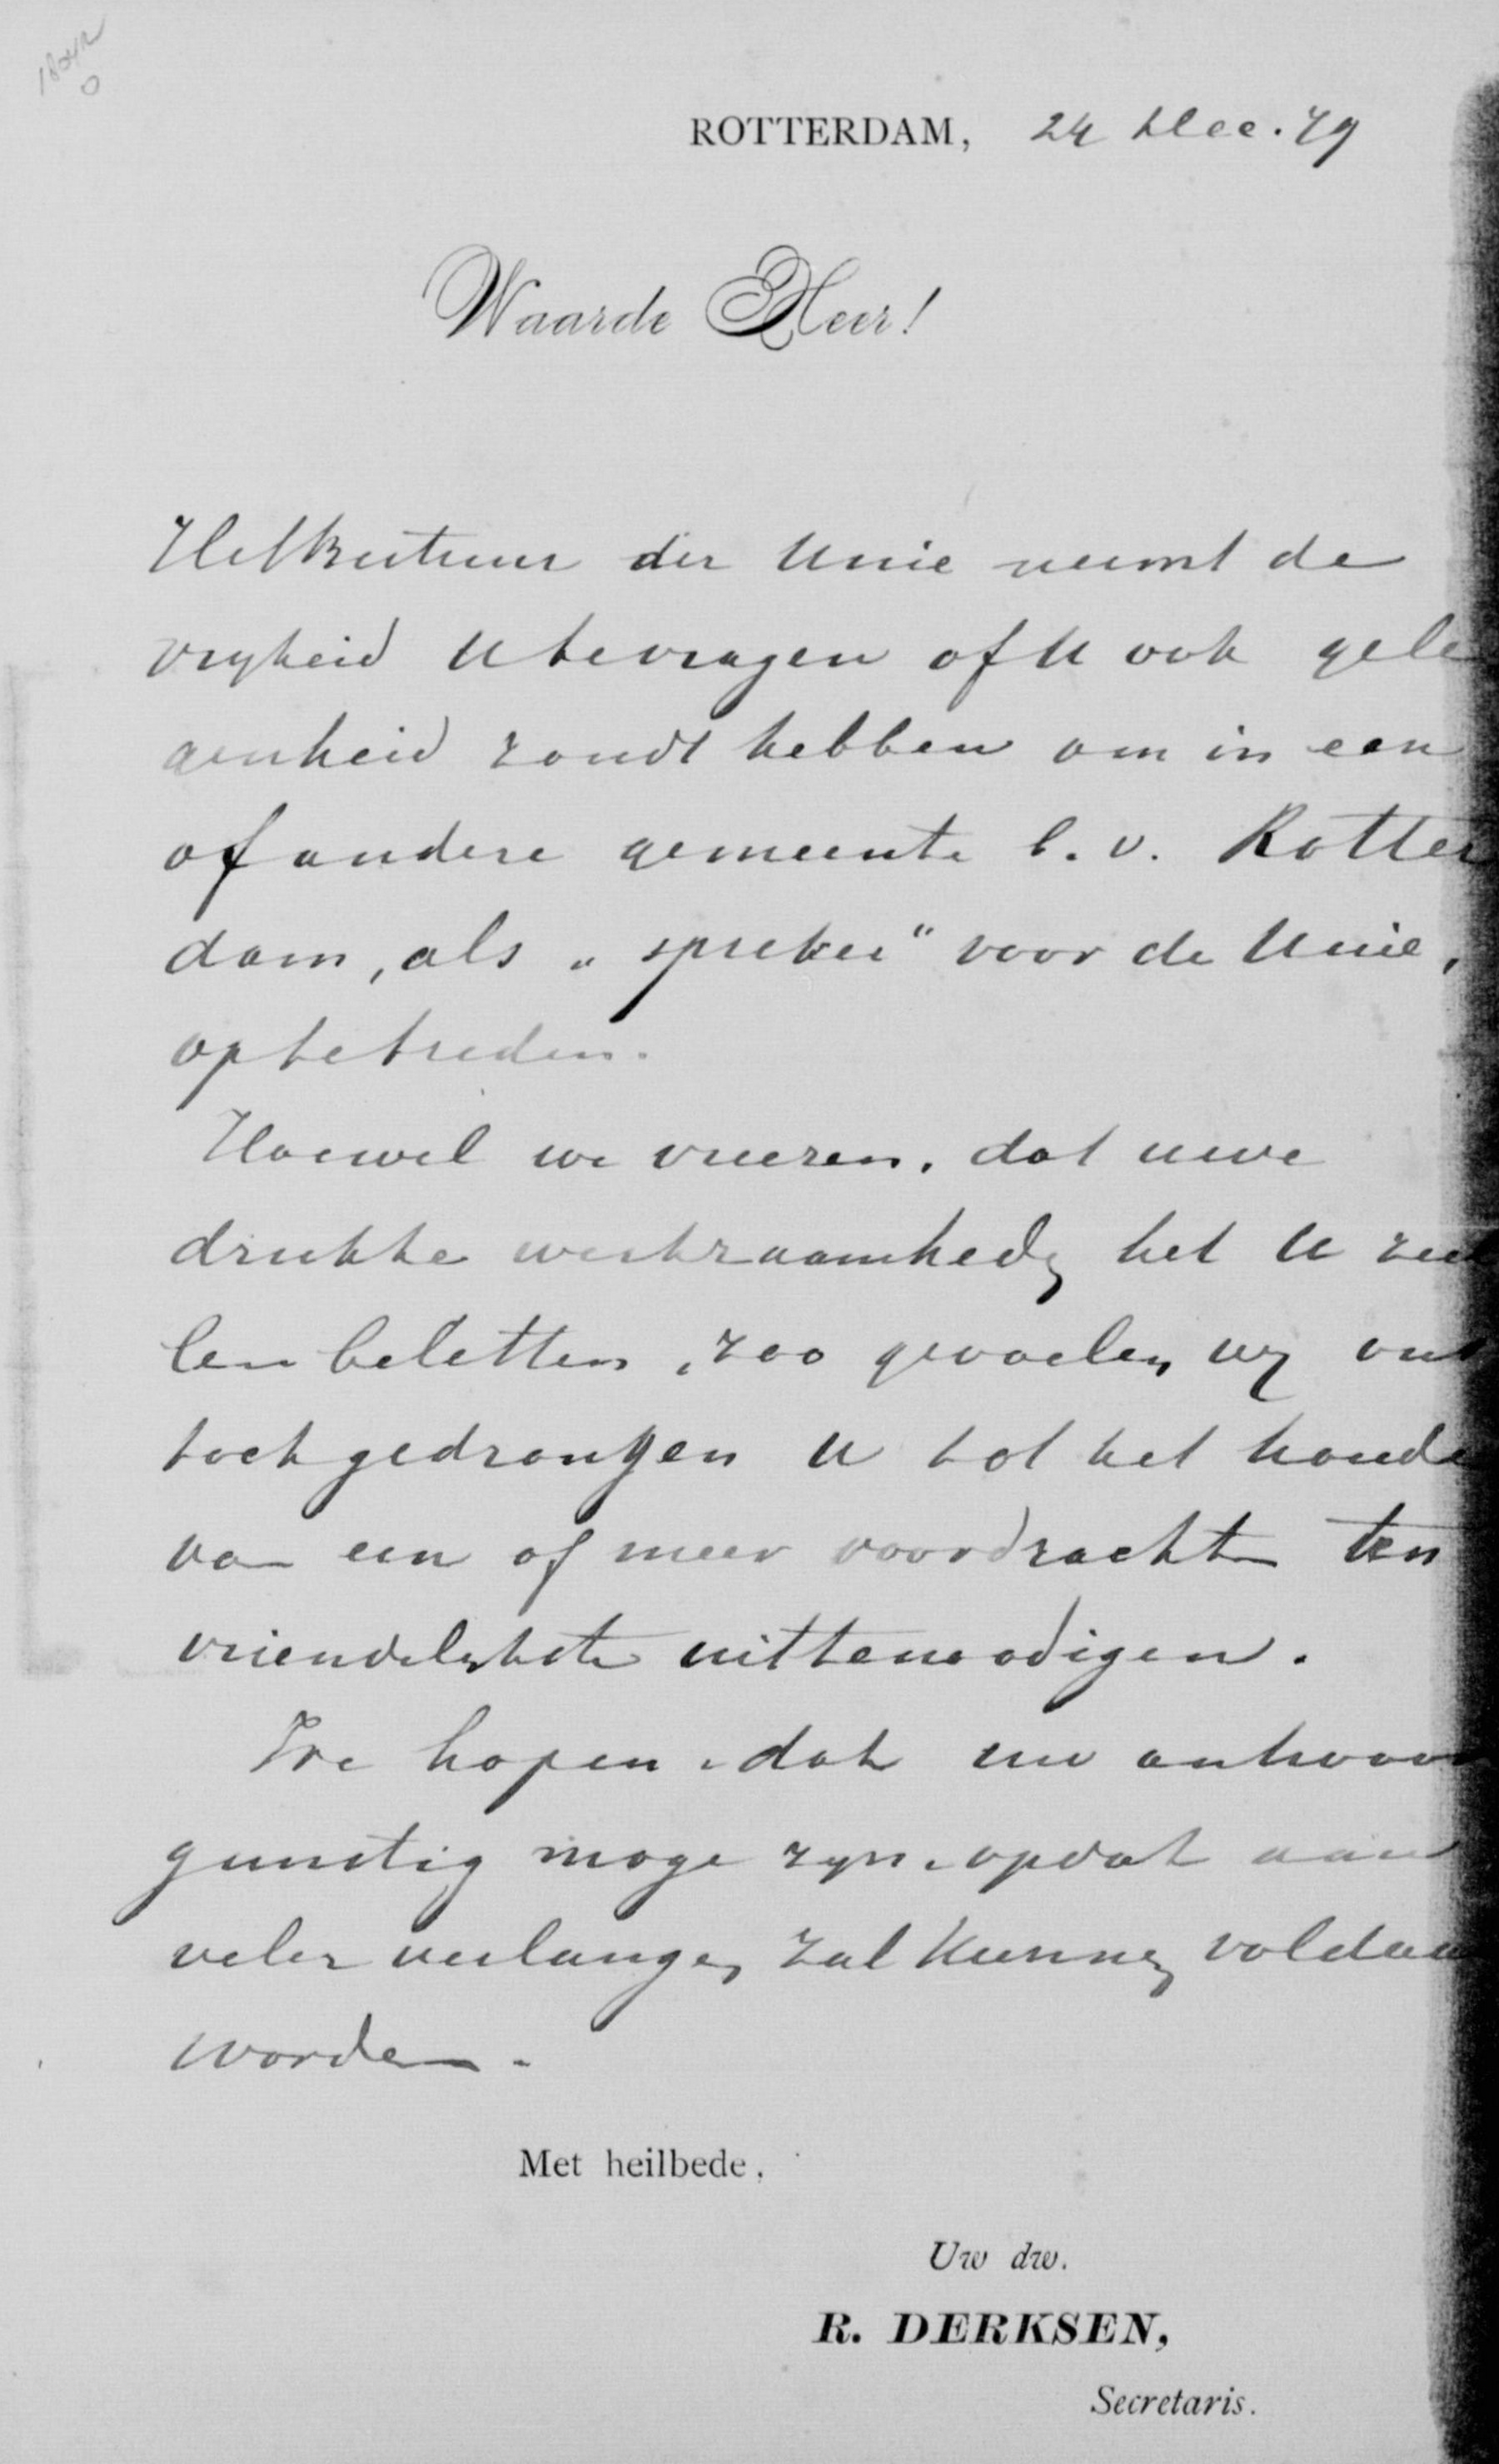 ROTTERDAM, 24 Dec. 79
Waarde Heer!
Het Bestuur der Unie neemt de
vryheid U te vragen of U ook gele
genheid zoudt hebben om in een
of andere gemeente b. v. Rotter
dam, als „spreker“ voor de Unie,
op te treden.
Hoewel we vreezen, dat uwe
drukke werkzaamheden het U zul
len beletten, zoo gevoelen wy ons
toch gedrongen U tot het houde
van een of meer voordrachten ten
vriendelykste uittenoodigen.
We hopen, dat uw antwoor
gunstig moge zyn, opdat aan
veler verlangen zal kunnen voldaan
worden.
Met heilbede,
Uw dw.
R. DERKSEN,
Secretaris.